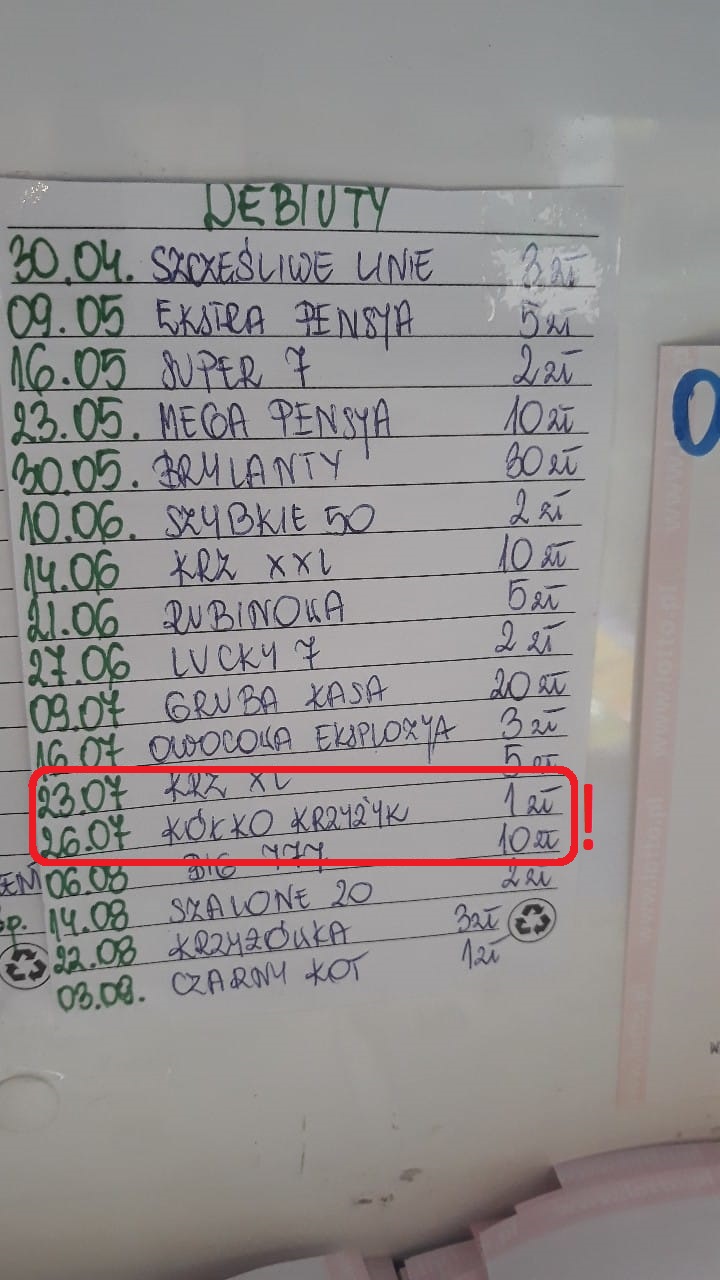 DEBIUTY
30.04. SZCZĘŚLIWE LINIE 3 zł
09.05 EKSTRA PENSJA 5 zł
16.05 SUPER 7 2 zł
23.05. MEGA PENSJA 10 zł
30.05. BRYLANTY 30 zł
10.06. SZYBKIE 50 2 zł
14.06 KRZ XXL 10 zł
21.06 RUBINOWA 5 zł
27.06 LUCKY 7 2 zł
09.07 GRUBA KASA 20 zł
16.07 OWOCOWA EKSPLOZJA 3 zł
23.07 KRZ XL 5 zł
26.07 KÓŁKO KRZYŻYK 1 zł
06.08 BIG 777 10 zł
14.08 SZALONE 20 2 zł
22.08 KRZYŻÓWKA 3 zł
03.09. CZARNY KOT 1 zł
!
O
www.lotto.pl
www.lotto.pl